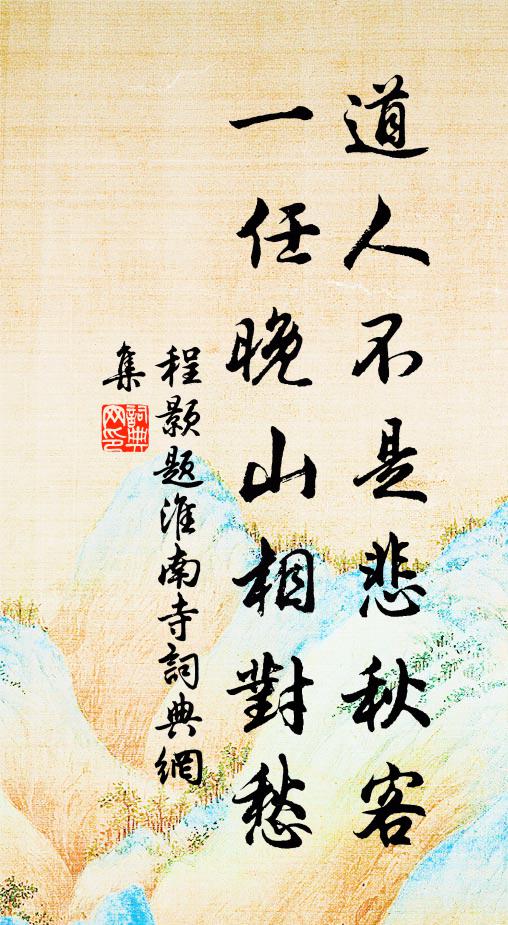 道人不是悲秋客
一任晚山相對愁
程顥題淮南寺詞典網
集
詞典網印